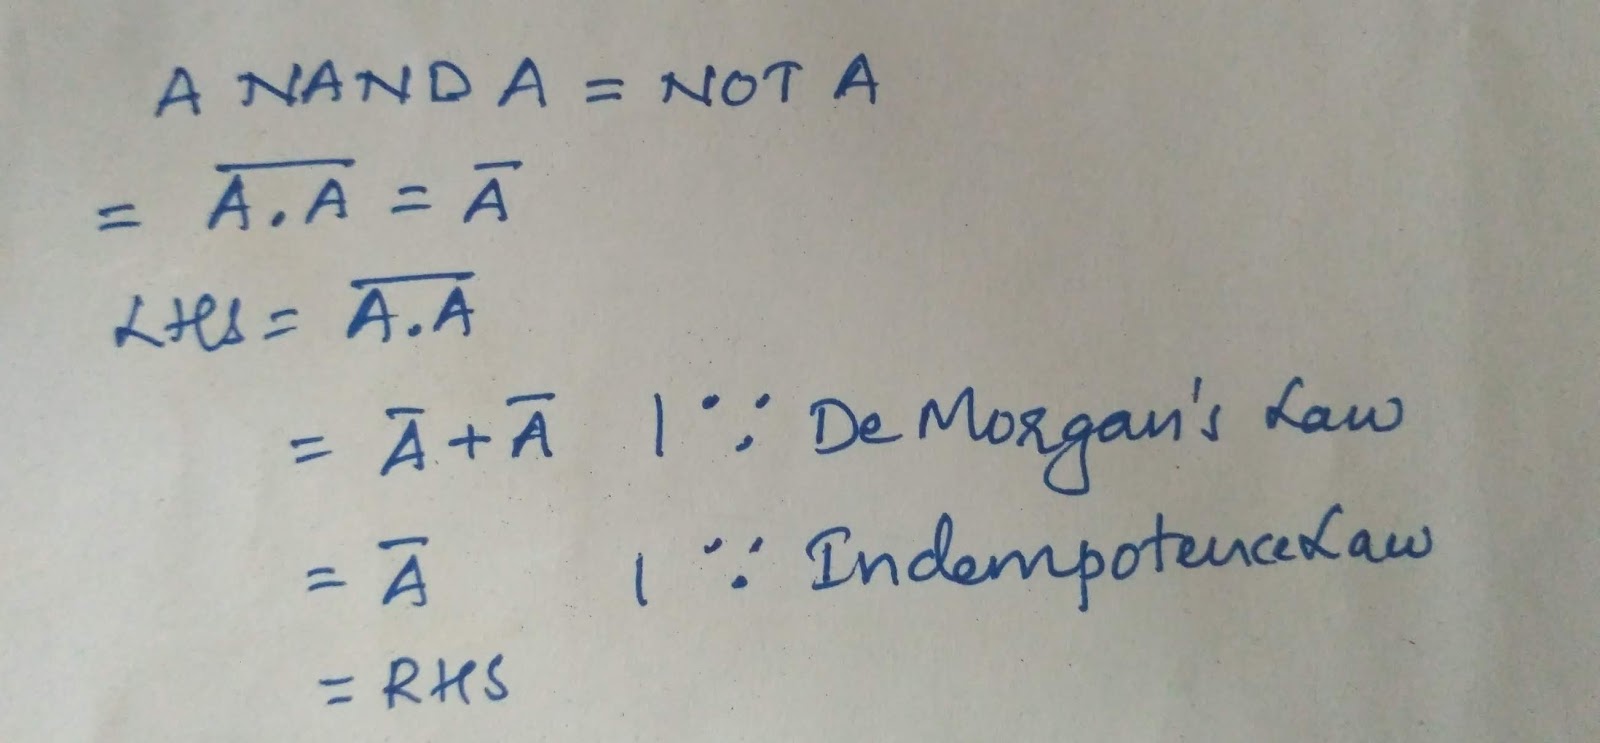 A NAND A = NOT A
= A̅.̅A̅ = A̅
LHS = A̅.̅A̅
= A̅ + A̅ | ∵ De Morgan's Law
= A̅ | ∵ Indempotence Law
= RHS